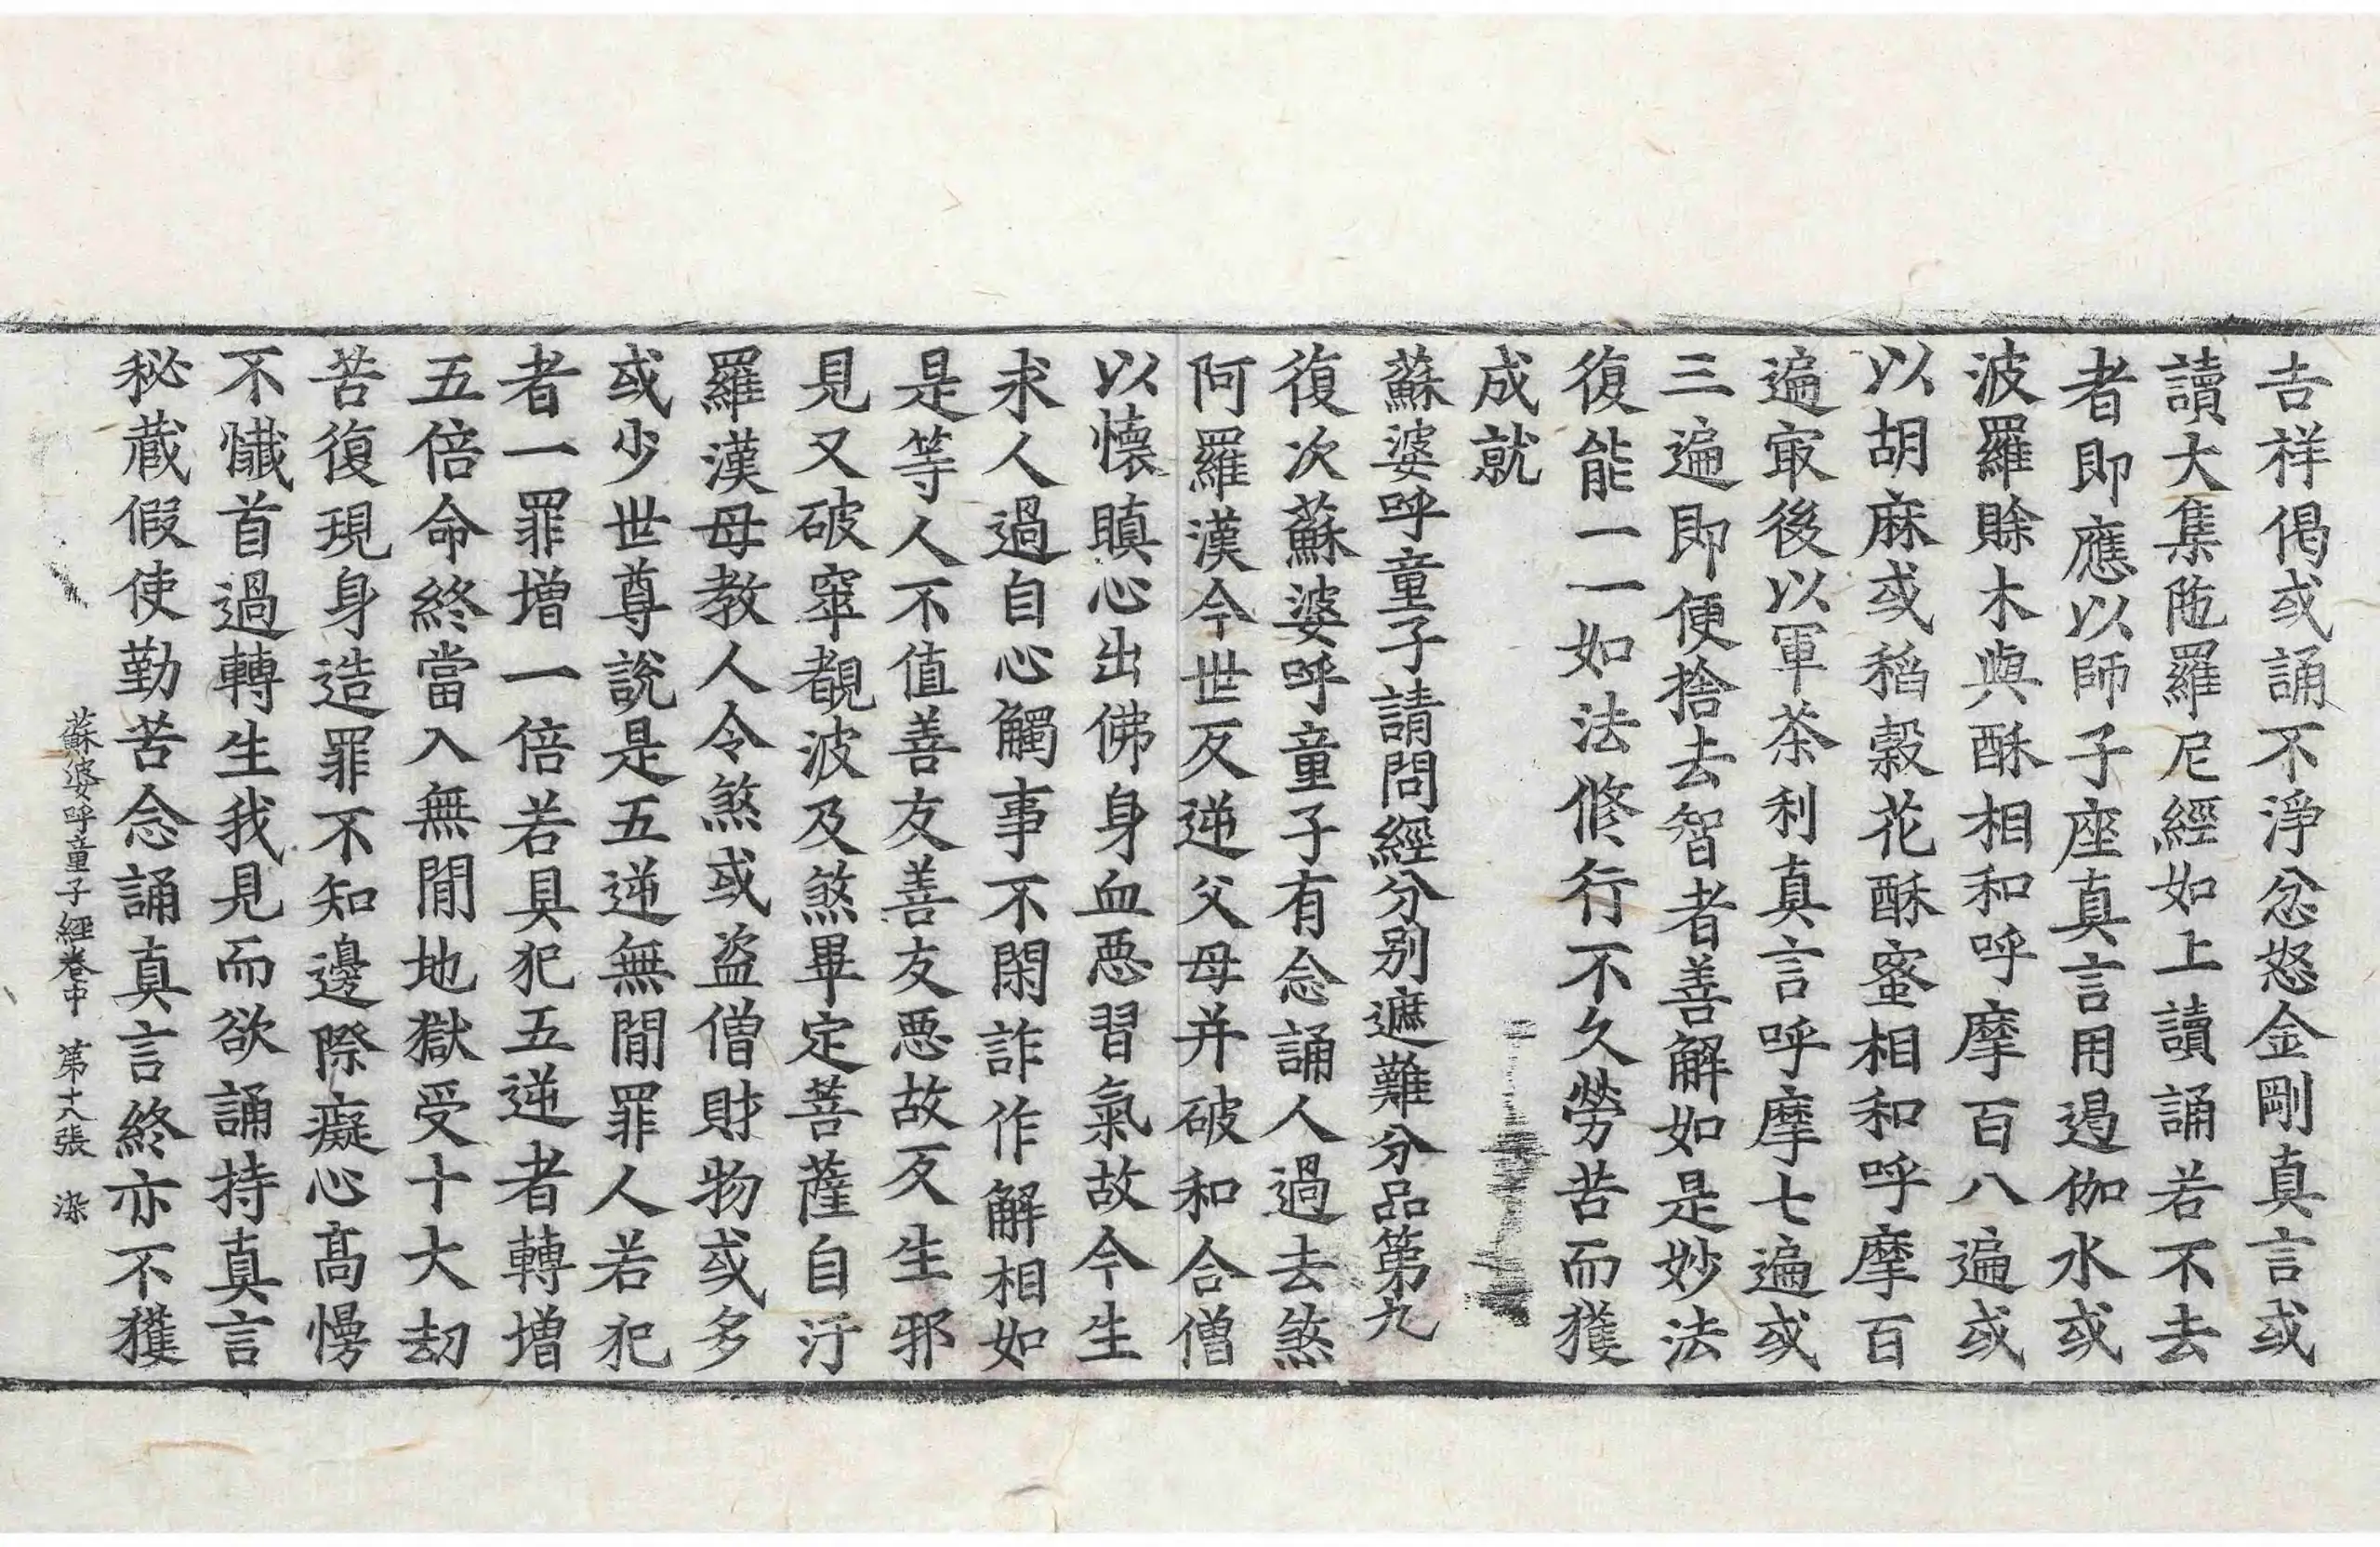 吉祥偈或誦不淨忿怒金剛真言或
讀大集陁羅尼經如上讀誦若不去
者即應以師子座真言用遏伽水或
波羅賖木與酥相和呼摩百八遍或
以胡麻或稻糓花酥蜜相和呼摩百
遍㝡後以軍荼利真言呼摩七遍或
三遍即便捨去智者善解如是妙法
復能一一如法修行不久勞苦而獲
成就
蘇婆呼童子請問經分别遮難分品第九
復次蘇婆呼童子有念誦人過去煞
阿羅漢今世反逆父母并破和合僧
以懷瞋心出佛身血惡習氣故今生
求人過自心觸事不閑詐作解相如
是等人不值善友善友惡故反生邪
見又破窣覩波及煞畢定菩薩自汙
羅漢母教人令煞或盜僧財物或多
或少世尊說是五逆無間罪人若犯
者一罪增一倍若具犯五逆者轉增
五倍命終當入無間地獄受十大劫
苦復現身造罪不知邊際癡心髙慢
不懺首過轉生我見而欲誦持真言
秘藏假使勤苦念誦真言終亦不獲
蘇婆呼童子經卷中 第十八張 染